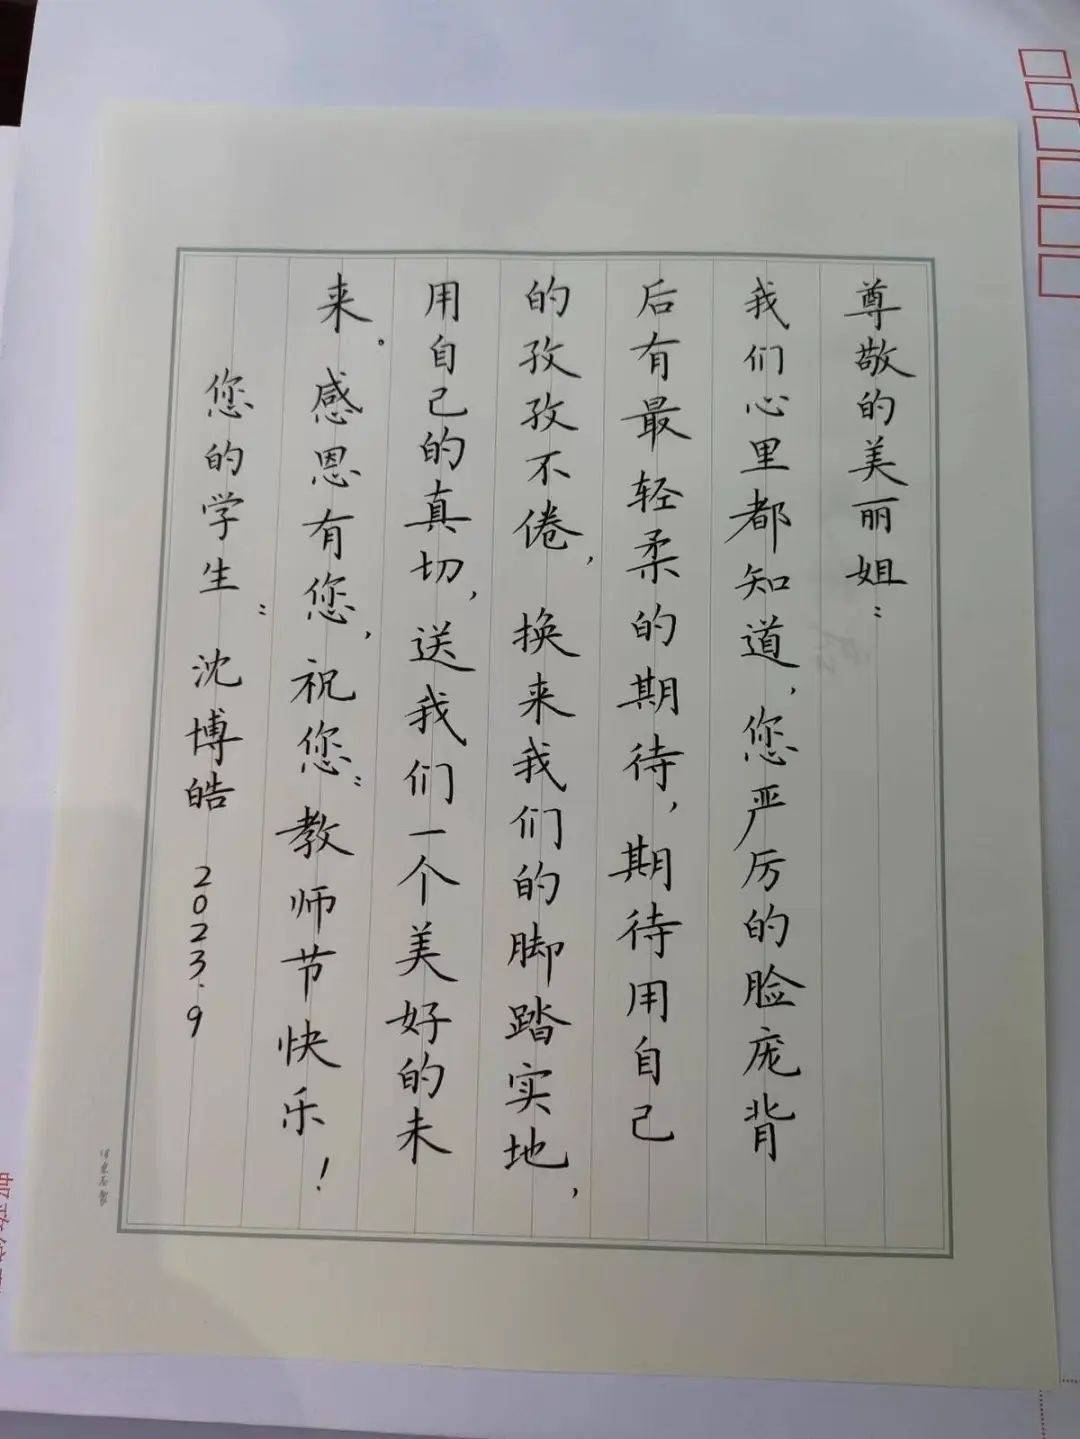 尊敬的美丽姐：
我们心里都知道，您严厉的脸庞背
后有最轻柔的期待，期待用自己
的孜孜不倦，换来我们的脚踏实地，
用自己的真切，送我们一个美好的未
来。感恩有您，祝您：教师节快乐！
您的学生：沈博皓 2023.9